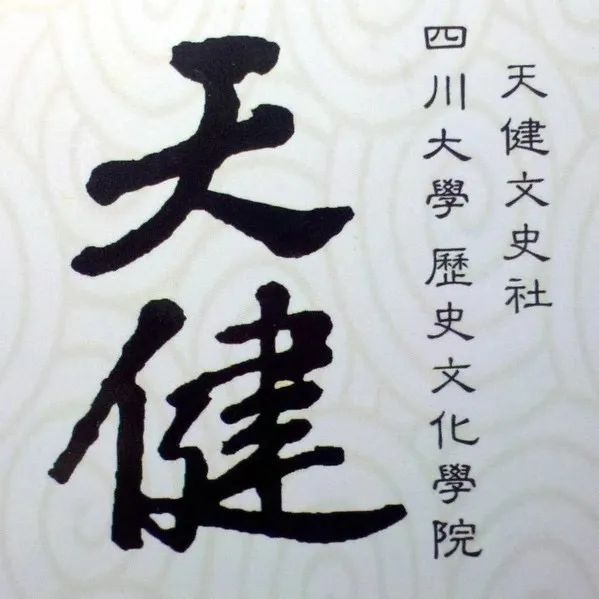 天健文史社
四川大學 歷史文化學院
天健